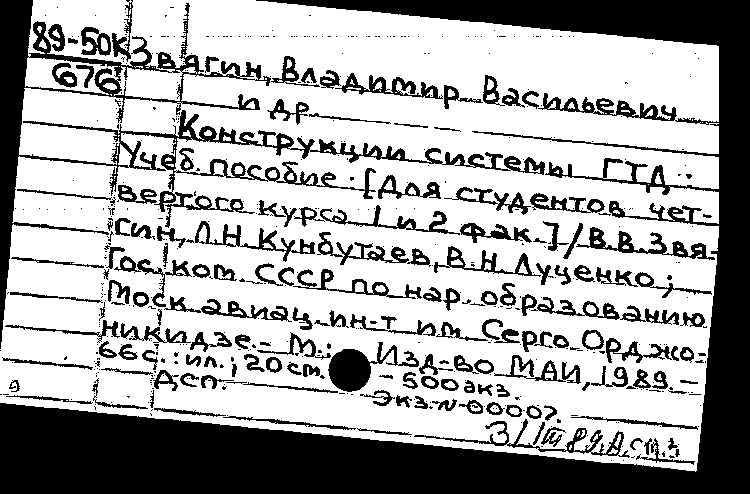 89-50К Звягин, Владимир Васильевич
676
и др.
Конструкции системы ГТД :
Учеб. пособие : [Для студентов чет-
вертого курса 1 и 2 фак.] / В.В. Звя-
гин, Л.Н. Кунбутаев, В.Н. Луценко ;
Гос. ком. СССР по нар. образованию
Моск. авиац. ин-т им. Серго Орджо-
никидзе. - М. : Изд-во МАИ, 1989. -
66 с. : ил. ; 20 см. - 500 экз.
ДСП. Экз. N 00007.